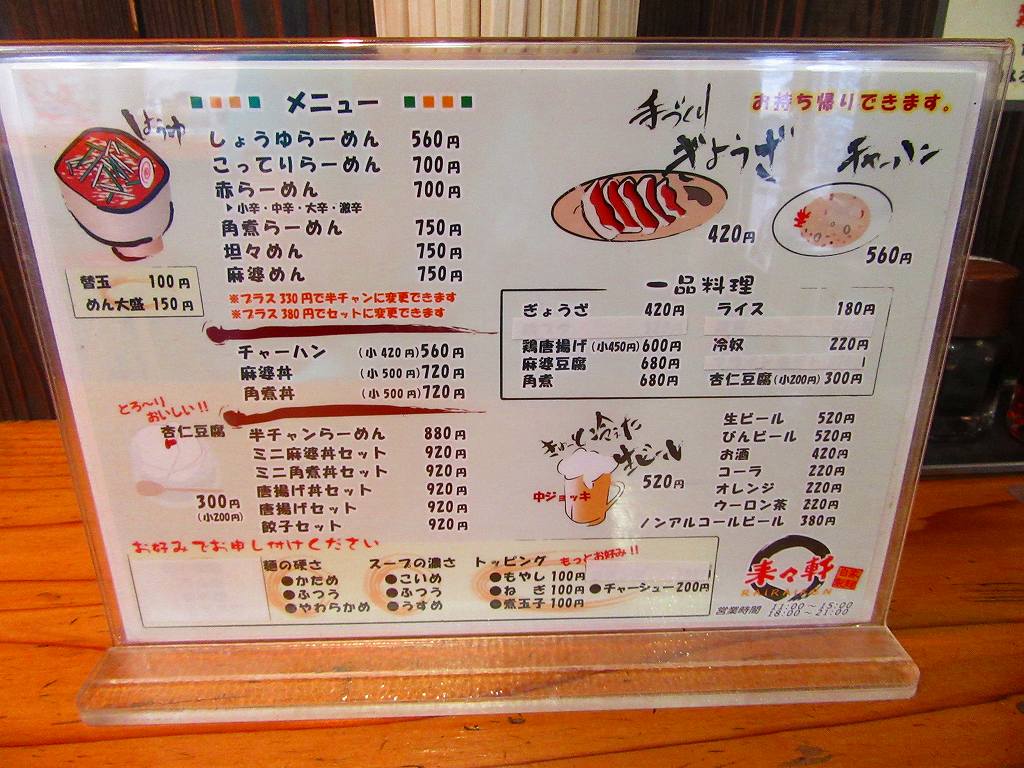 メニュー
しょうゆ
しょうゆらーめん 560円
こってりらーめん 700円
赤らーめん 700円
▶小辛・中辛・大辛・激辛
角煮らーめん 750円
坦々めん 750円
麻婆めん 750円
※プラス330円で半チャンに変更できます
※プラス380円でセットに変更できます
替玉 100円
めん大盛 150円
チャーハン (小420円) 560円
麻婆丼 (小500円) 720円
角煮丼 (小500円) 720円
とろ〜り
おいしい!!
杏仁豆腐
300円
(小200円)
半チャンらーめん 880円
ミニ麻婆丼セット 920円
ミニ角煮丼セット 920円
唐揚げ丼セット 920円
唐揚げセット 920円
餃子セット 920円
お持ち帰りできます。
手づくり
ぎょうざ
420円
チャーハン
560円
一品料理
ぎょうざ 420円 ライス 180円
鶏唐揚げ (小450円) 600円 冷奴 220円
麻婆豆腐 680円
角煮 680円 杏仁豆腐 (小200円) 300円
きゅーっと冷えた
生ビール
中ジョッキ
520円
生ビール 520円
びんビール 520円
お酒 420円
コーラ 220円
オレンジ 220円
ウーロン茶 220円
ノンアルコールビール 380円
お好みでお申し付けください
麺の硬さ スープの濃さ トッピング もっとお好み!!
●かため ●こいめ ●もやし 100円
●ふつう ●ふつう ●ねぎ 100円 ●チャーシュー 200円
●やわらかめ ●うすめ ●煮玉子 100円
来々軒
RAIRAIKEN
営業時間 11:00〜15:00
18:00〜21:00